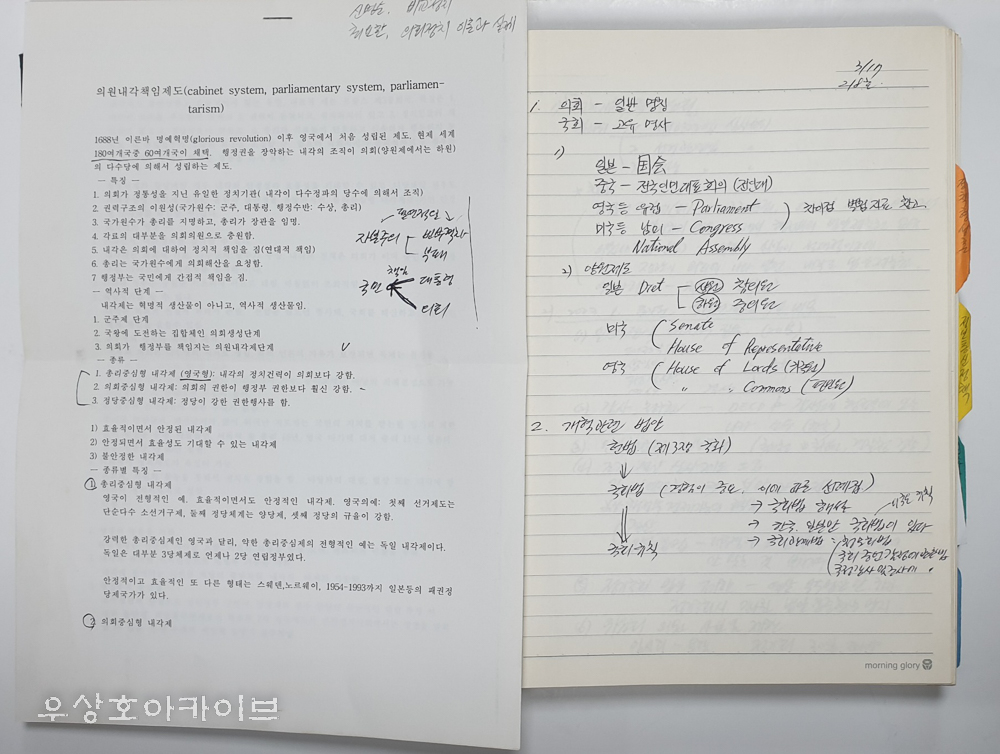 신명순, 비교정치
최요환, 의회정치 이론과 실제
의원내각책임제도(cabinet system, parliamentary system, parliamen-
tarism)
1688년 이른바 명예혁명(glorious revolution) 이후 영국에서 처음 성립된 제도, 현재 세계
180여개국중 60여개국이 채택. 행정권을 장악하는 내각의 조직이 의회(양원제에서는 하원)
의 다수당에 의해서 성립하는 제도.
— 특징 —
1. 의회가 정통성을 지닌 유일한 정치기관( 내각이 다수정파의 당수에 의해서 조직)
2. 권력구조의 이원성(국가원수: 군주, 대통령. 행정수반: 수상, 총리)
3. 국가원수가 총리를 지명하고, 총리가 장관을 임명.
4. 각료의 대부분을 의회의원으로 충원함.
5. 내각은 의회에 대하여 정치적 책임을 짐(연대적 책임)
6. 총리는 국가원수에게 의회해산을 요청함.
7 행정부는 국민에게 간접적 책임을 짐.
자본주의
부패
책임
국민
대통령
의회
— 역사적 단계 —
내각제는 혁명적 생산물이 아니고, 역사적 생산물임.
1. 군주제 단계
2. 국왕에 도전하는 집합체인 의회생성단계
3. 의회가 행정부를 책임지는 의원내각제단계
— 종류 —
1. 총리중심형 내각제 (영국형): 내각의 정치권력이 의회보다 강함.
2. 의회중심형 내각제: 의회의 권한이 행정부 권한보다 훨신 강함.
3. 정당중심형 내각제: 정당이 강한 권한행사를 함.
1) 효율적이면서 안정된 내각제
2) 안정되면서 효율성도 기대할 수 있는 내각제
3) 불안정한 내각제
— 종류별 특징 —
① 총리중심형 내각제
영국이 전형적인 예. 효율적이면서도 안정적인 내각제. 영국의예: 첫째 선거제도는
단순다수 소선거구제, 둘째 정당체계는 양당제, 셋째 정당의 규율이 강함.
강력한 총리중심제인 영국과 달리, 약한 총리중심제의 전형적인 예는 독일 내각제이다.
독일은 대부분 3당체제로 언제나 2당 연립정부였다.
안정적이고 효율적인 또 다른 형태는 스웨덴,노르웨이, 1954-1993까지 일본등의 패권정
당제국가가 있다.
② 의회중심형 내각제
우상호아카이브
3/17
218호.
1. 의회 — 일반 명칭
국회 — 고유 명사
1)
일본 — 国会
중국 — 전국인민대표회의 (전인대)
영국등 유럽 — Parliament
미국등 남미 — Congress
National Assembly
차이점 별첨자료 참고
2) 양원제도
일본 Diet 상원 참의원
하원 중의원
미국 Senate
House of Representative
영국 House of Lords (귀족원)
〃 〃 Commons (평민원)
2. 개혁관련 법안
헌법 (제3장 국회)
국회법 (경험이 중요. 이에 따른 선례집)
→ 국회법 해설
→ 한국, 일본만 국회법이 있다
미국은 규칙
→ 국회관계법 : 청문회법
국회 증언 감정에 관한 법
국정감사 및 조사에 〃
국회규칙
morning glory